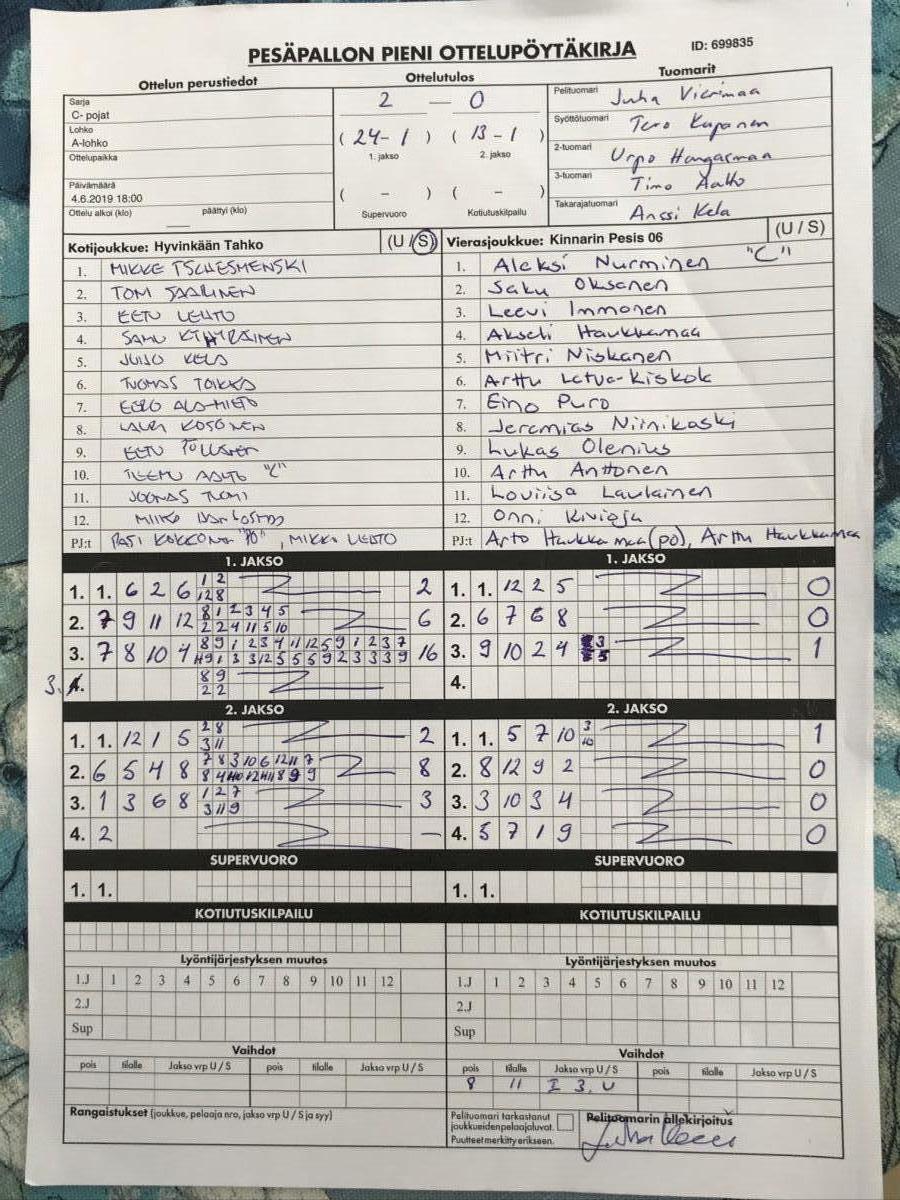 PESÄPALLON PIENI OTTELUPÖYTÄKIRJA
ID: 699835
Ottelun perustiedot
Sarja
C- pojat
Lohko
A-lohko
Ottelupaikka
Päivämäärä
4.6.2019 18:00
Ottelu alkoi (klo) päättyi (klo)
Ottelutulos
2 — 0
( 24-1 ) ( 13-1 )
1. jakso 2. jakso
( - ) ( - )
Supervuoro Kotiutuskilpailu
Tuomarit
Pelituomari Juha Vierimaa
Syöttötuomari Tero Kuponen
2-tuomari Urpo Hangasmaa
3-tuomari Timo Aalto
Takarajatuomari Anssi Kela
Kotijoukkue: Hyvinkään Tahko (U / S)
1. MIKKE TSCHESMENSKI
2. TOM SAARINEN
3. EETU LEHTO
4. SAMU
5. JUHO KELA
6. TUOMAS TOIKKA
7. EERO ALA-MIETO
8. LAURI KOSONEN
9. EETU
10. TEEMU AALTO "C"
11. JOONAS TUOMI
12. MIIKO
PJ:t PASI KOKKONEN "PO", MIKKO LEHTO
Vierasjoukkue: Kinnarin Pesis 06 (U / S)
1. Aleksi Nurminen "C"
2. Saku Oksanen
3. Leevi Immonen
4. Akseli Haukkamaa
5. Miitri Niskanen
6. Arttu Latva-Kiskok
7. Eino Puro
8. Jeremias Niinikoski
9. Lukas Olenius
10. Arttu Anttonen
11. Loviisa Laulainen
12. Onni Kivioja
PJ:t Arto Haukkamaa (po), Arttu Haukkamaa
1. JAKSO
1. 1. 6 2 6 1 2 2
12 8
2. 7 9 11 12 8 1 2 3 4 5 6
2 2 4 11 5 10
3. 7 8 10 4 8 9 1 2 3 4 11 12 5 9 1 2 3 7 16
9 1 3 3 12 5 5 5 9 2 3 3 3 9
3. 4. 8 9
2 2
1. JAKSO
1. 1. 12 2 5 0
2. 6 7 6 8 0
3. 9 10 2 4 3 1
5
4.
2. JAKSO
1. 1. 12 1 5 2 8 2
3 11
2. 6 5 4 8 7 8 3 10 6 12 11 7 8
8 4 10 12 11 8 9 9
3. 1 3 6 8 1 2 7 3
3 11 9
4. 2 —
2. JAKSO
1. 1. 5 7 10 3 1
10
2. 8 12 9 2 0
3. 3 10 3 4 0
4. 5 7 1 9 0
SUPERVUORO
1. 1.
SUPERVUORO
1. 1.
KOTIUTUSKILPAILU
KOTIUTUSKILPAILU
Lyöntijärjestyksen muutos
1.J 1 2 3 4 5 6 7 8 9 10 11 12
2.J
Sup
Lyöntijärjestyksen muutos
1.J 1 2 3 4 5 6 7 8 9 10 11 12
2.J
Sup
Vaihdot
pois tilalle Jakso vrp U / S pois tilalle Jakso vrp U / S
Vaihdot
pois tilalle Jakso vrp U / S pois tilalle Jakso vrp U / S
8 11 I 3. U
Rangaistukset (joukkue, pelaaja nro, jakso vrp U / S ja syy)
Pelituomari tarkastanut
joukkueiden pelaajaluvat.
Puutteet merkitty erikseen.
Pelituomarin allekirjoitus